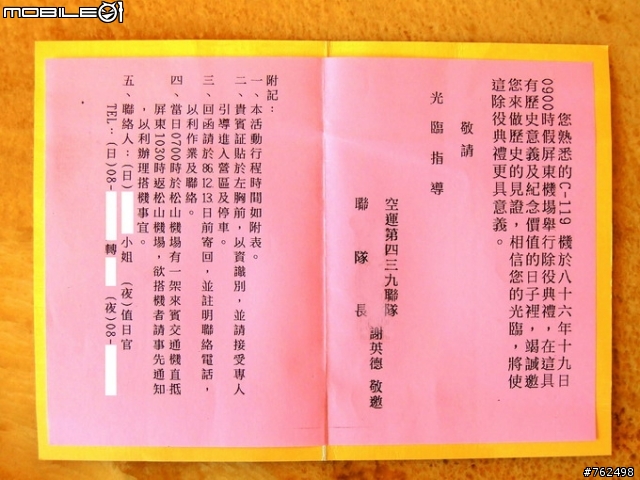 您熟悉的C-119 機於八十六年十九日
0900時假屏東機場舉行除役典禮，在這具
有歷史意義及紀念價值的日子裡，竭誠邀
您來做歷史的見證，相信您的光臨，將使
這除役典禮更具意義。
敬請
光臨指導
空運第四三九聯隊
聯隊長 謝英德 敬邀
附記：
一、本活動行程時間如附表。
二、貴賓証貼於左胸前，以資識別，並請接受專人
引導進入營區及停車。
三、回函請於86.12.13日前寄回，並註明聯絡電話，
以利作業及聯絡。
四、當日0700時於松山機場有一架來賓交通機直抵
屏東1030時返松山機場，欲搭機者請事先通知
，以利辦理搭機事宜。
五、聯絡人：(日) 小姐 (夜)值日官
TEL：(日)08- 轉 (夜)08-
MOBILE01
#762498